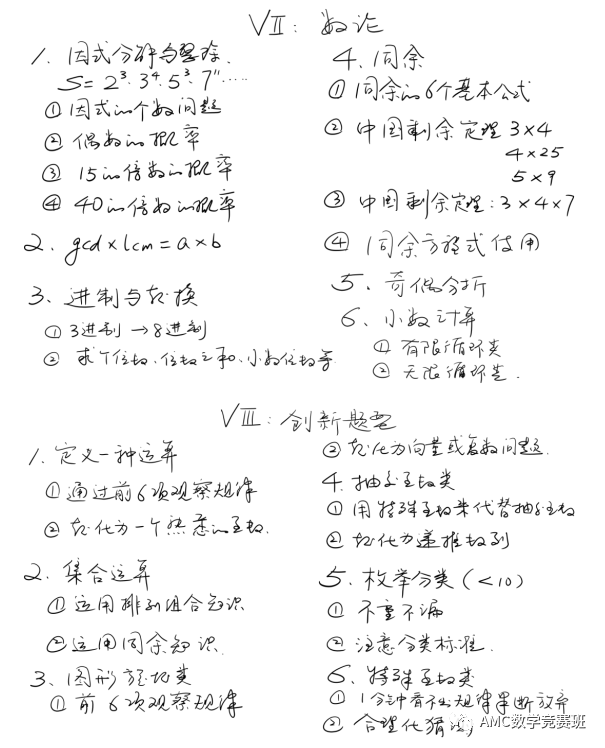 VII: 数论
1. 因式分解与整除.
S = 2³·3⁴·5³·7¹¹·····
① 因式的个数问题
② 偶数的概率
③ 15的倍数的概率
④ 40的倍数的概率
2. gcd×lcm = a×b
3. 进制与转换
① 3进制 → 8进制
② 求个位数、位数之和、小数位数等
4. 同余
① 同余的6个基本公式
② 中国剩余定理 3×4
4×25
5×9
③ 中国剩余定理: 3×4×7
④ 同余方程式使用
5. 奇偶分析
6. 小数计算
① 有限循环类
② 无限循环类.
VIII: 创新题型
1. 定义一种运算
① 通过前6项观察规律
② 转化为一个熟悉的函数.
2. 集合运算
① 运用排列组合知识
② 运用同余知识.
3. 图形变换类
① 前6项观察规律
② 转化为向量或复数问题.
4. 抽象函数类
① 用特殊函数来代替抽象函数
② 转化为递推数列
5. 枚举分类 (<10)
① 不重不漏
② 注意分类标准.
6. 特殊函数类
① 1分钟看不出规律果断放弃
② 合理化猜
AMC数学竞赛班